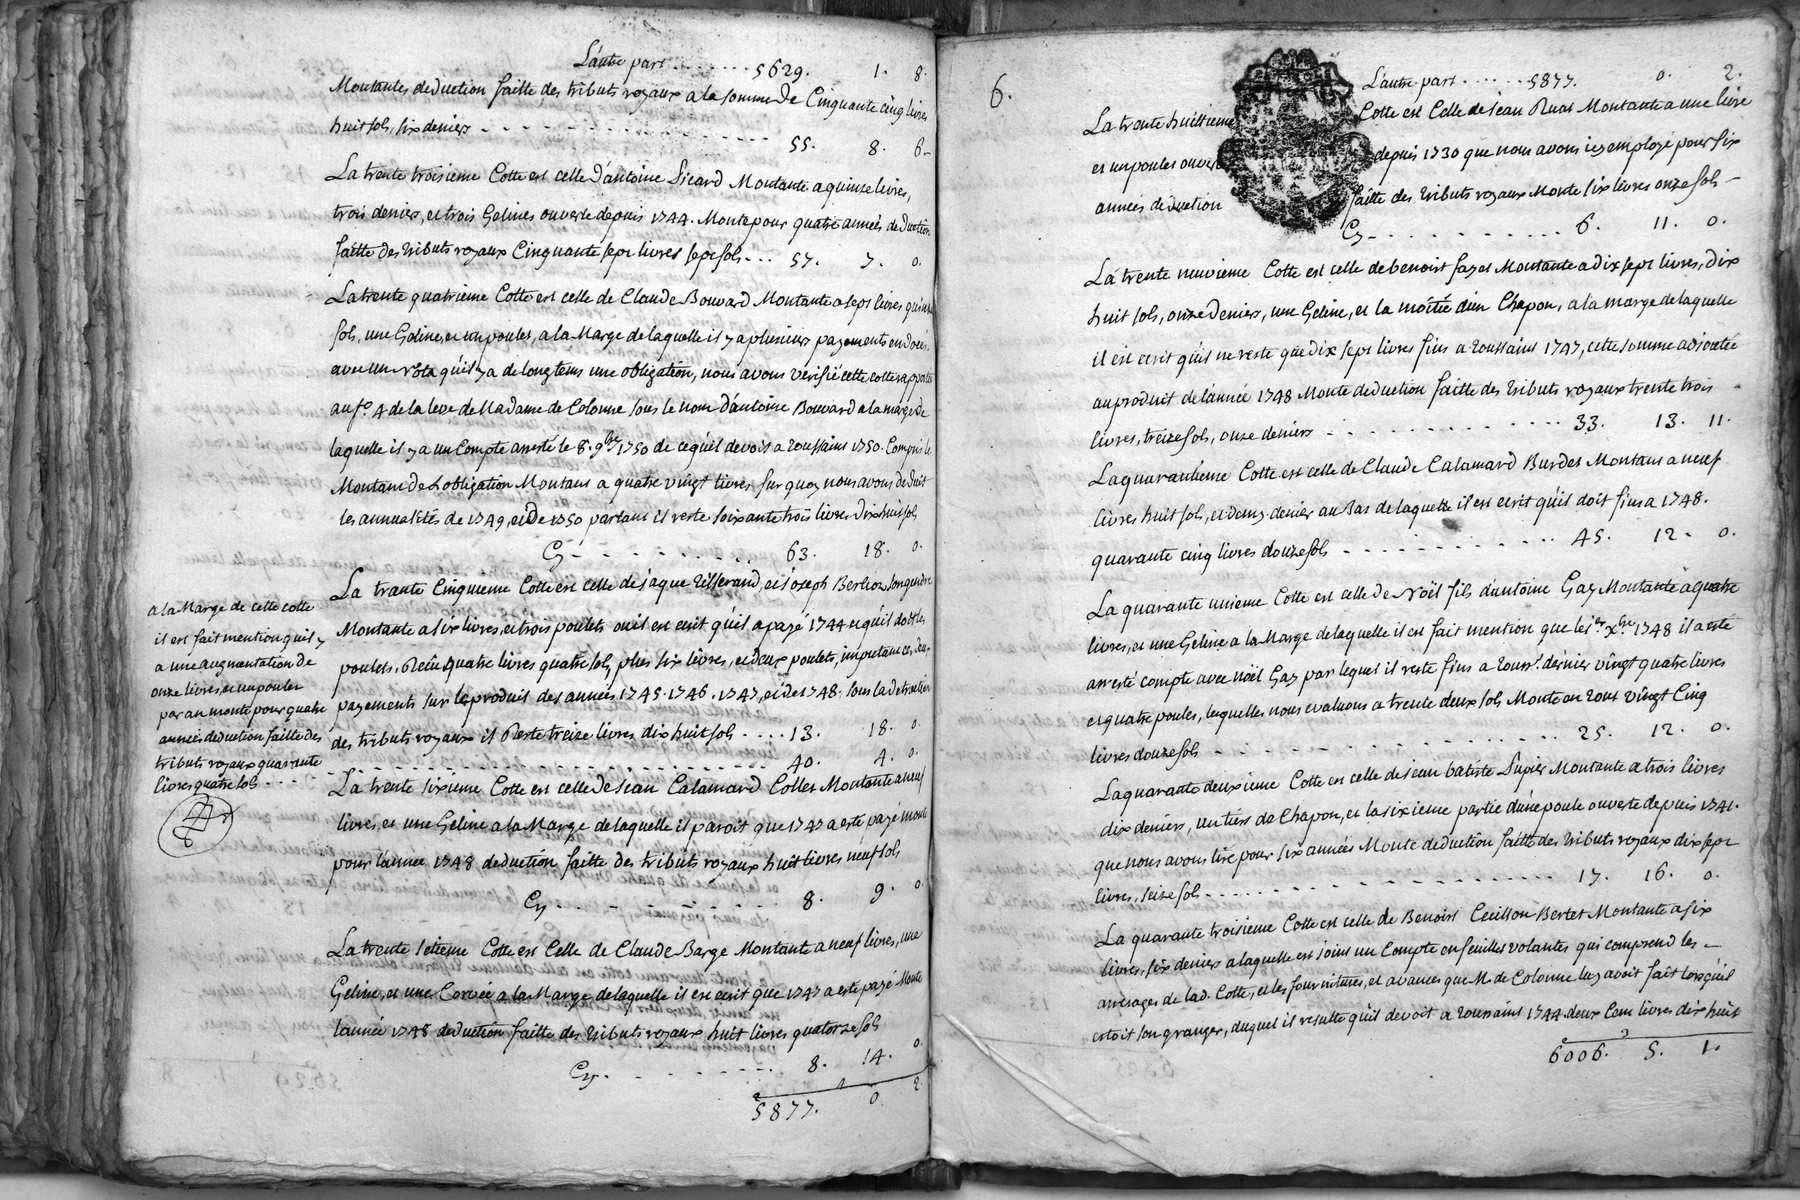 L'autre part . . . . . . . 5629. 1. 8.
Montantes deduction faitte des tributs royaux a la somme de Cinquante cinq livres
huit sols, six deniers - - - - - - - - 55. 8. 6-
La trente troisieme Cotte est celle d'antoine Sicard Montante a quinze livres,
trois deniers, et trois Gelines ouverte depuis 1744. Monte pour quatre années deduction
faitte des tributs royaux Cinquante sept livres sept sols - - - 57. 7. 0.
La trente quatrieme Cotte est celle de Claude Bouvard Montante a sept livres quinze
sols, une Geline, et un poulet, a la Marge de laquelle il y a plusieurs payements endossés
avec un Nota qu'il y a de longtems une obligation, nous avons vérifié cette cotte rapportée
au f.o 4 de la leve de Madame de Colonne sous le nom d'antoine Bouvard a la marge de
laquelle il y a un Compte arresté le 8. 9bre 1750 de ce qu'il devoit a toussaints 1750. Compris le
Montant de L'obligation Montant a quatre vingt livres sur quoy nous avons deduit
les annualités de 1749, et de 1750 partant il reste soixante trois livres dix huit sols
Cy - - - - - - - - 63. 18. 0.
La trante Cinquieme Cotte est celle de Jaque Tisserand, et Joseph Berlioz son gendre
Montante a six livres, et trois poulets ou il est ecrit qu'il a payé 1744 et qu'il doit les
poulets. Reçu quatre livres quatre sols, plus six livres, et deux poulets, imputant ces deux
payements sur le produit des années 1745. 1746. 1747, et de 1748. sous la detraction
des tributs royaux il Reste treize livres dix huit sols . . . . 13. 18. 0.
- - - - - - - - 40. 4. 0.
a la Marge de cette cotte
il est fait mention qu'il y
a une augmentation de
onze livres, et un poulet
par an monte pour quatre
années deduction faitte des
tributs royaux quarante
livres quatre sols - - -
La trente sixieme Cotte est celle de Jean Calamard Collet Montante a neuf
livres, et une Geline a la Marge de laquelle il paroit que 1747 a esté payé monte
pour l'année 1748 deduction faitte des tributs royaux huit livres neuf sols
Cy - - - - - - - - 8. 9. 0.
La trente setieme Cotte est Celle de Claude Barge Montante a neuf livres, une
Geline, et une Corvée a la Marge de laquelle il est ecrit que 1747 a esté payé Monte
l'année 1748 deduction faitte des tributs royaux huit livres quatorze sols
Cy - - - - - - - - 8. 14. 0.
5877. 0. 2.
6.
L'autre part . . . . . 5877. 0. 2.
La trente huittieme Cotte est Celle de Jean Ruat Montante a une livre
et un poulet ouverte depuis 1730 que nous avons icy employé pour six
années deduction faitte des tributs royaux Monte six livres onze sols -
Cy - - - - - - - - 6. 11. 0.
La trente neuvieme Cotte est celle de benoist fayet Montante a dix sept livres, dix
huit sols, onze deniers, une Geline, et la moitié d'un Chapon, a la marge de laquelle
il est ecrit qu'il ne reste que dix sept livres fins a toussaints 1747, cette somme adjoutée
au produit de l'année 1748 Monte deduction faitte des tributs royaux trente trois
livres, treize sols, onze deniers - - - - - - - - 33. 13. 11.
La quarantieme Cotte est celle de Claude Calamard Burdet Montant a neuf
livres huit sols, et demy denier au Bas de laquelle il est ecrit qu'il doit fins a 1748.
quarante cinq livres douze sols - - - - - - - - 45. 12. 0.
La quarante unieme Cotte est celle de Noël fils d'antoine Gay Montante a quatre
livres, et une Geline a la Marge de laquelle il est fait mention, que le 1er xbre 1748 il a esté
arresté compte avec noël Gay par lequel il reste fins a touss.t dernier vingt quatre livres
et quatre poules, lesquelles nous evaluons a trente deux sols Monte en tout vingt Cinq
livres douze sols - - - - - - - - 25. 12. 0.
La quarante deuxieme Cotte est celle de Jean batiste Supier Montante a trois livres
dix deniers, un tiers de Chapon, et la sixieme partie d'une poule ouverte depuis 1741.
que nous avons tiré pour six années Monte deduction faitte des tributs royaux dix sept
livres, seize sols - - - - - - - - 17. 16. 0.
La quarante troisieme Cotte est celle de Benoist Cecillon Bertet Montante a six
livres, six deniers a laquelle est joint un Compte en feuilles volantes qui comprend les -
arrerages de lad. Cotte, et les fournitures, et avances que M. de Colonne luy avoit fait lorsqu'il
estoit son granger, duquel il resulte qu'il devoit a toussaints 1744 deux Cent livres dix huit
6006. 5. 1.